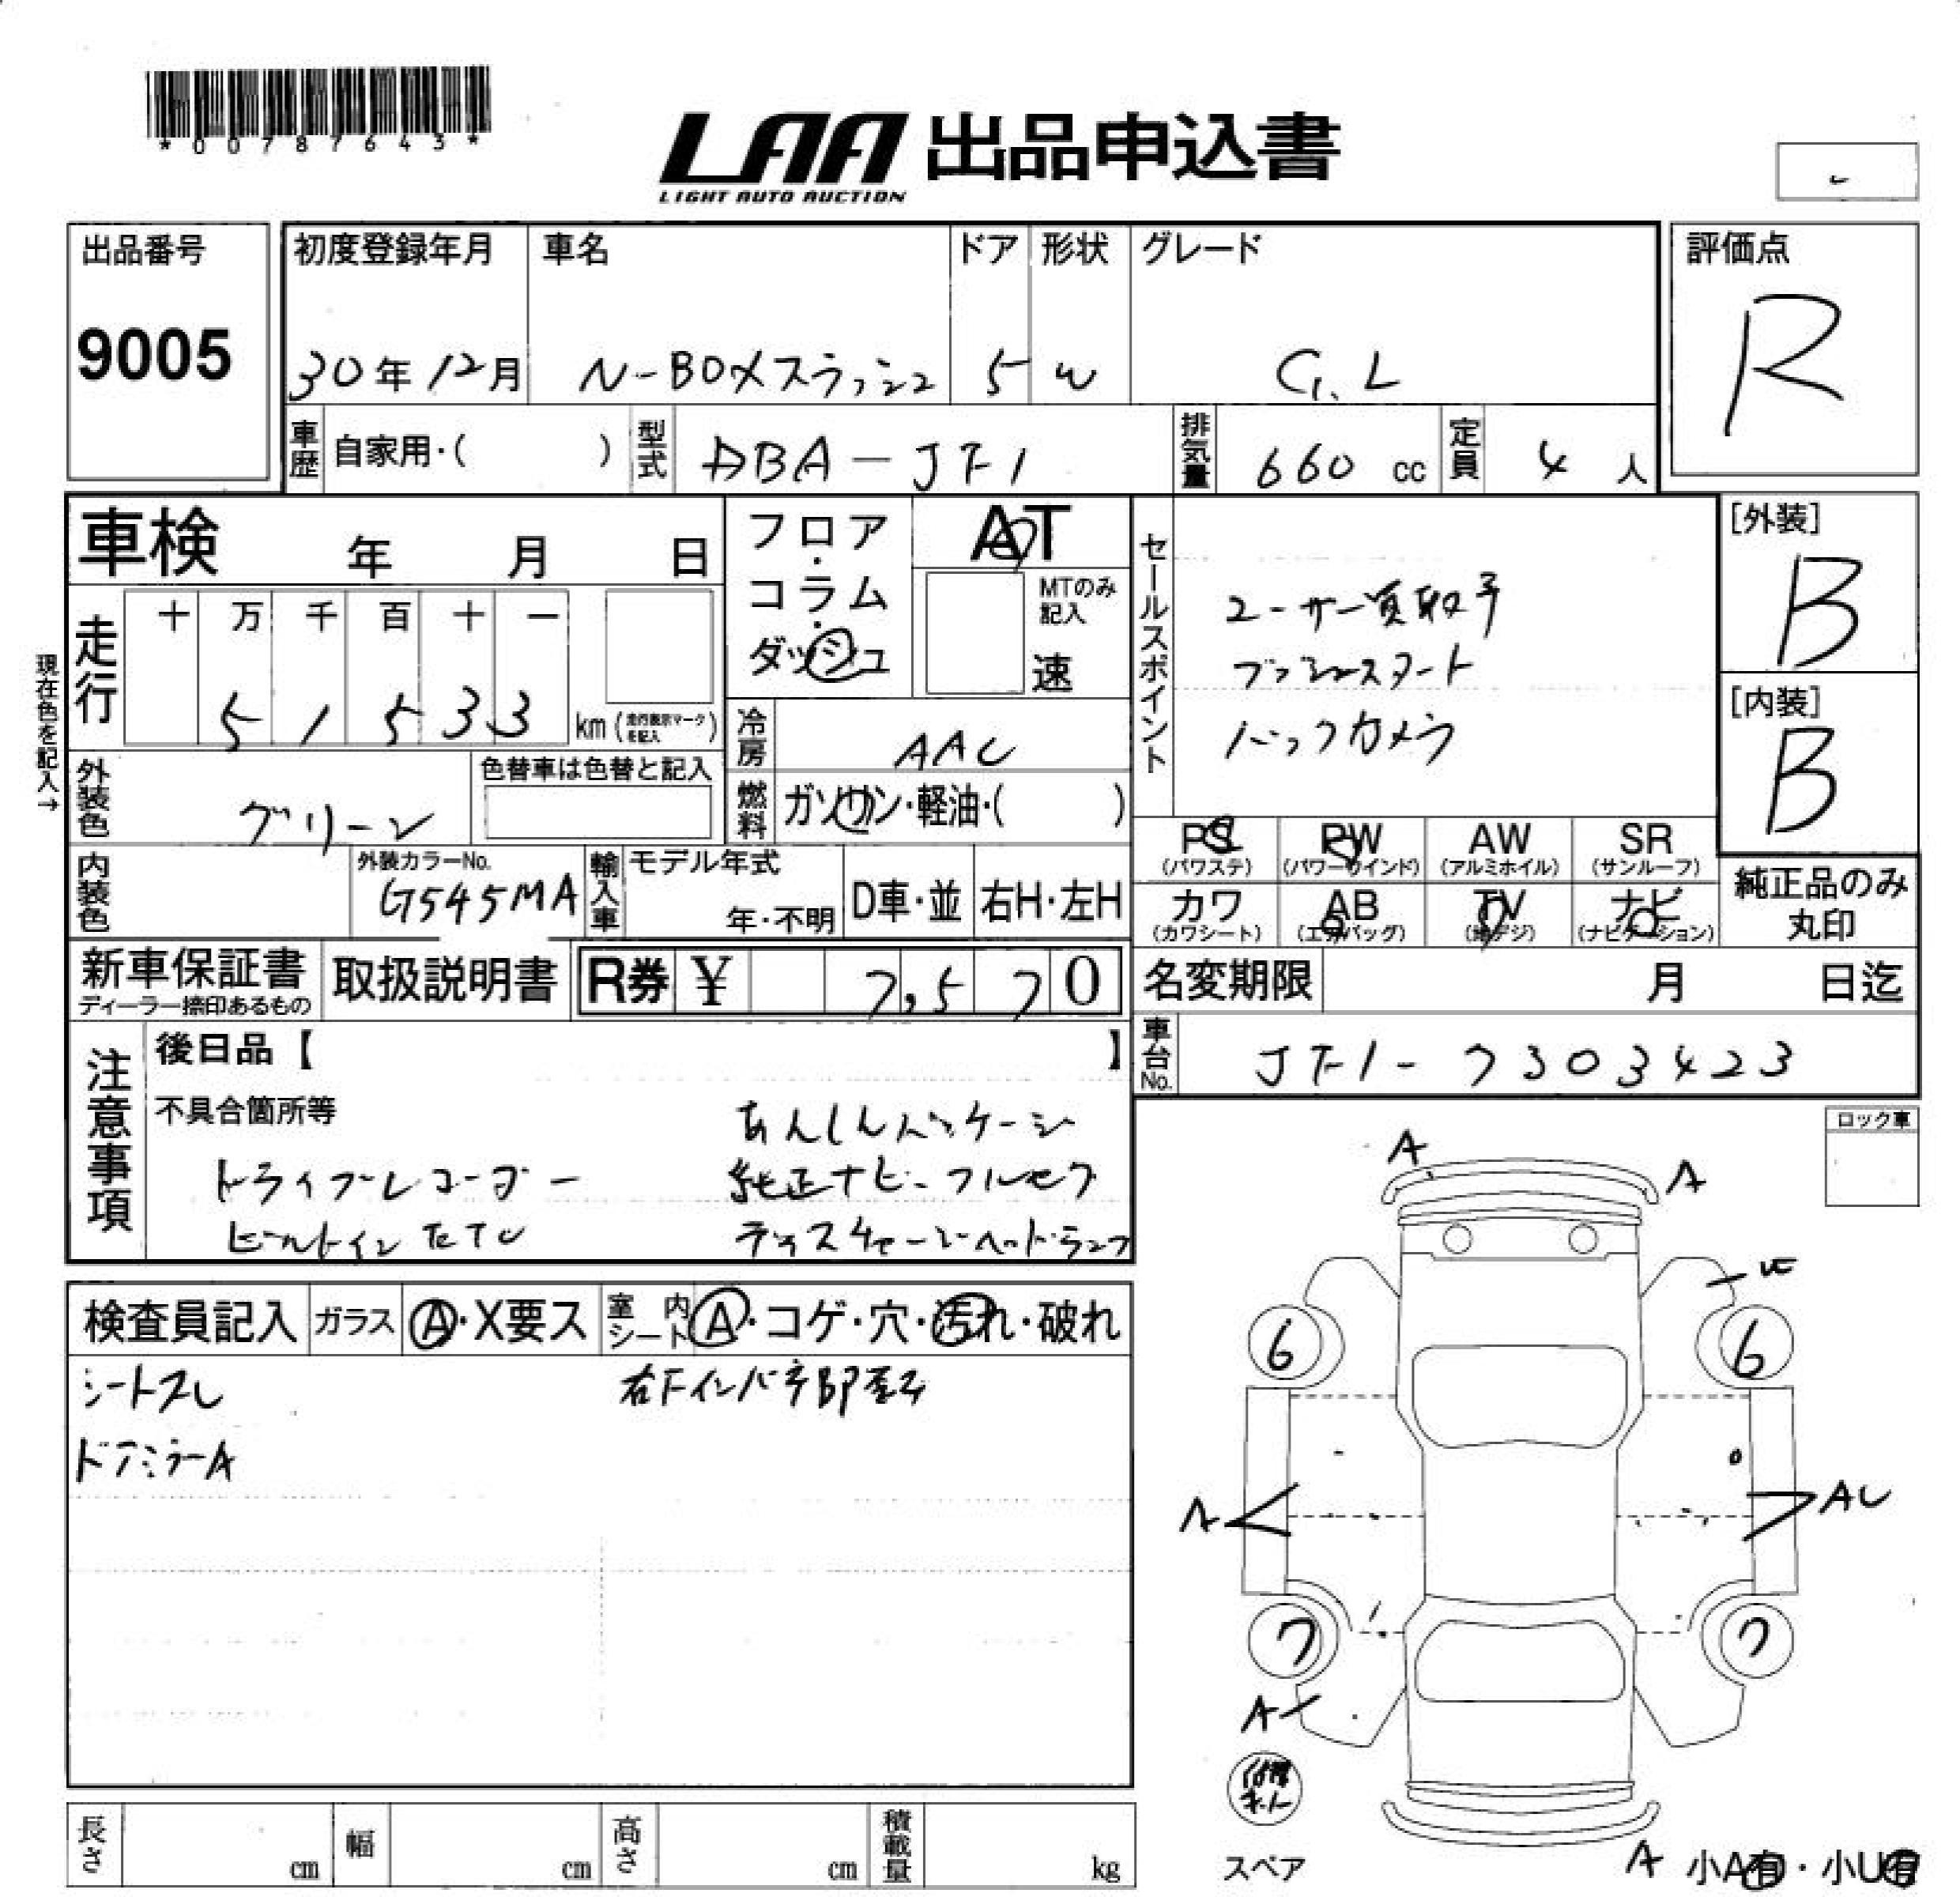 *00787643*
LAA 出品申込書
LIGHT AUTO AUCTION
出品番号
9005
初度登録年月
30年12月
車名
N-BOXスラッシュ
ドア
5
形状
W
グレード
G.L
評価点
R
車歴
自家用・( )
型式
DBA-JF1
排気量
660 cc
定員
4 人
車検 年 月 日
フロア・コラム・ダッシュ
AT
MTのみ記入
速
セールスポイント
ユーザー買取り
プッシュスタート
バックカメラ
[外装]
B
[内装]
B
現在色を記入→
走行
十 万 千 百 十 一
5 1 5 3 3
km (走行表示マークを記入)
冷房
AAC
外装色
グリーン
色替車は色替と記入
燃料
ガソリン・軽油・( )
PS
(パワステ)
PW
(パワーウインド)
AW
(アルミホイル)
SR
(サンルーフ)
カワ
(カワシート)
AB
(エアバッグ)
TV
(地デジ)
ナビ
(ナビゲーション)
純正品のみ
丸印
内装色
外装カラーNo.
G545MA
輸入車
モデル年式
年・不明
D車・並
右H・左H
新車保証書
ディーラー捺印あるもの
取扱説明書
R券 ¥ 7,570
名変期限 月 日迄
車台No.
JF1-7303423
注意事項
後日品【 】
不具合箇所等
あんしんパッケージ
ドライブレコーダー
純正ナビ フルセグ
ビルトインETC
ディスチャージヘッドランプ
ロック車
検査員記入
ガラス
A・X要ス
室内シート
A・コゲ・穴・汚れ・破れ
シートスレ
ドアミラーA
A
A
6
6
A
AU
7
7
A
修理キット
スペア
A
小A有・小U有
長さ cm
幅 cm
高さ cm
積載量 kg